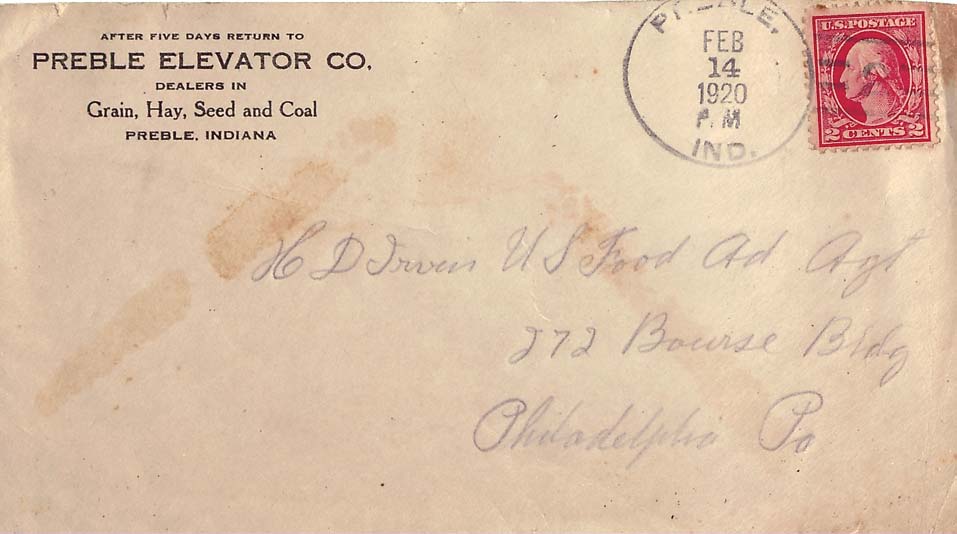 AFTER FIVE DAYS RETURN TO
PREBLE ELEVATOR CO.
DEALERS IN
Grain, Hay, Seed and Coal
PREBLE, INDIANA
PREBLE,
FEB
14
1920
P.M
IND.
U.S. POSTAGE
2 CENTS 2
H D Irvin U S Food Ad Agt
272 Bourse Bldg
Philadelphia Pa